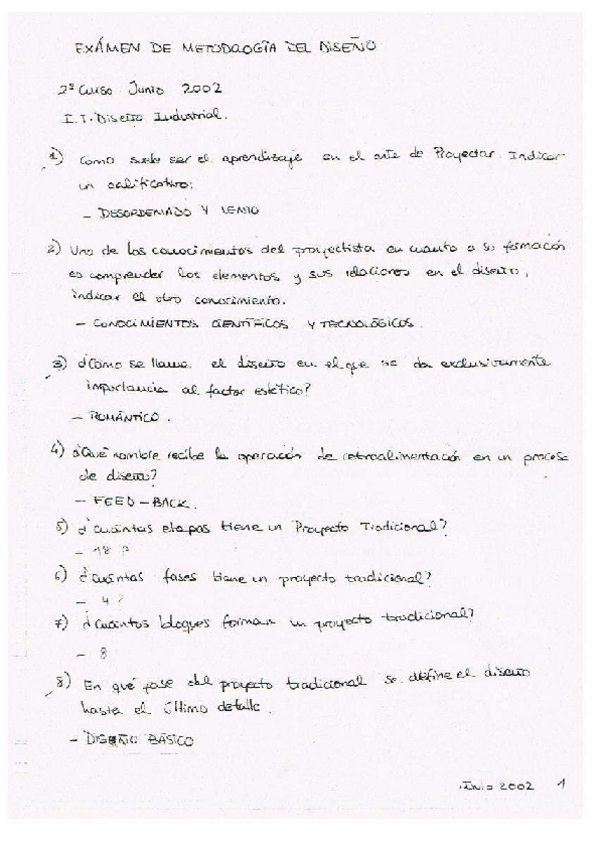 EXÁMEN DE METODOLOGÍA DEL DISEÑO
2º Curso Junio 2002
I.T. Diseño Industrial.
1) Como suele ser el aprendizaje en el arte de Proyectar. Indicar
un calificativo:
- DESORDENADO Y LENTO
2) Uno de los conocimientos del proyectista en cuanto a su formación
es comprender los elementos y sus relaciones en el diseño,
indicar el otro conocimiento.
- CONOCIMIENTOS CIENTÍFICOS Y TECNOLÓGICOS.
3) ¿Cómo se llama el diseño en el que se da exclusivamente
importancia al factor estético?
- ROMÁNTICO.
4) ¿Qué nombre recibe la operación de retroalimentación en un proceso
de diseño?
- FEED-BACK.
5) ¿Cuántas etapas tiene un Proyecto Tradicional?
- 18 ?
6) ¿Cuántas fases tiene un proyecto tradicional?
- 4 ?
7) ¿Cuántos bloques forman un proyecto tradicional?
- 8
8) En qué fase del proyecto tradicional se define el diseño
hasta el último detalle.
- DISEÑO BÁSICO
Junio 2002 1